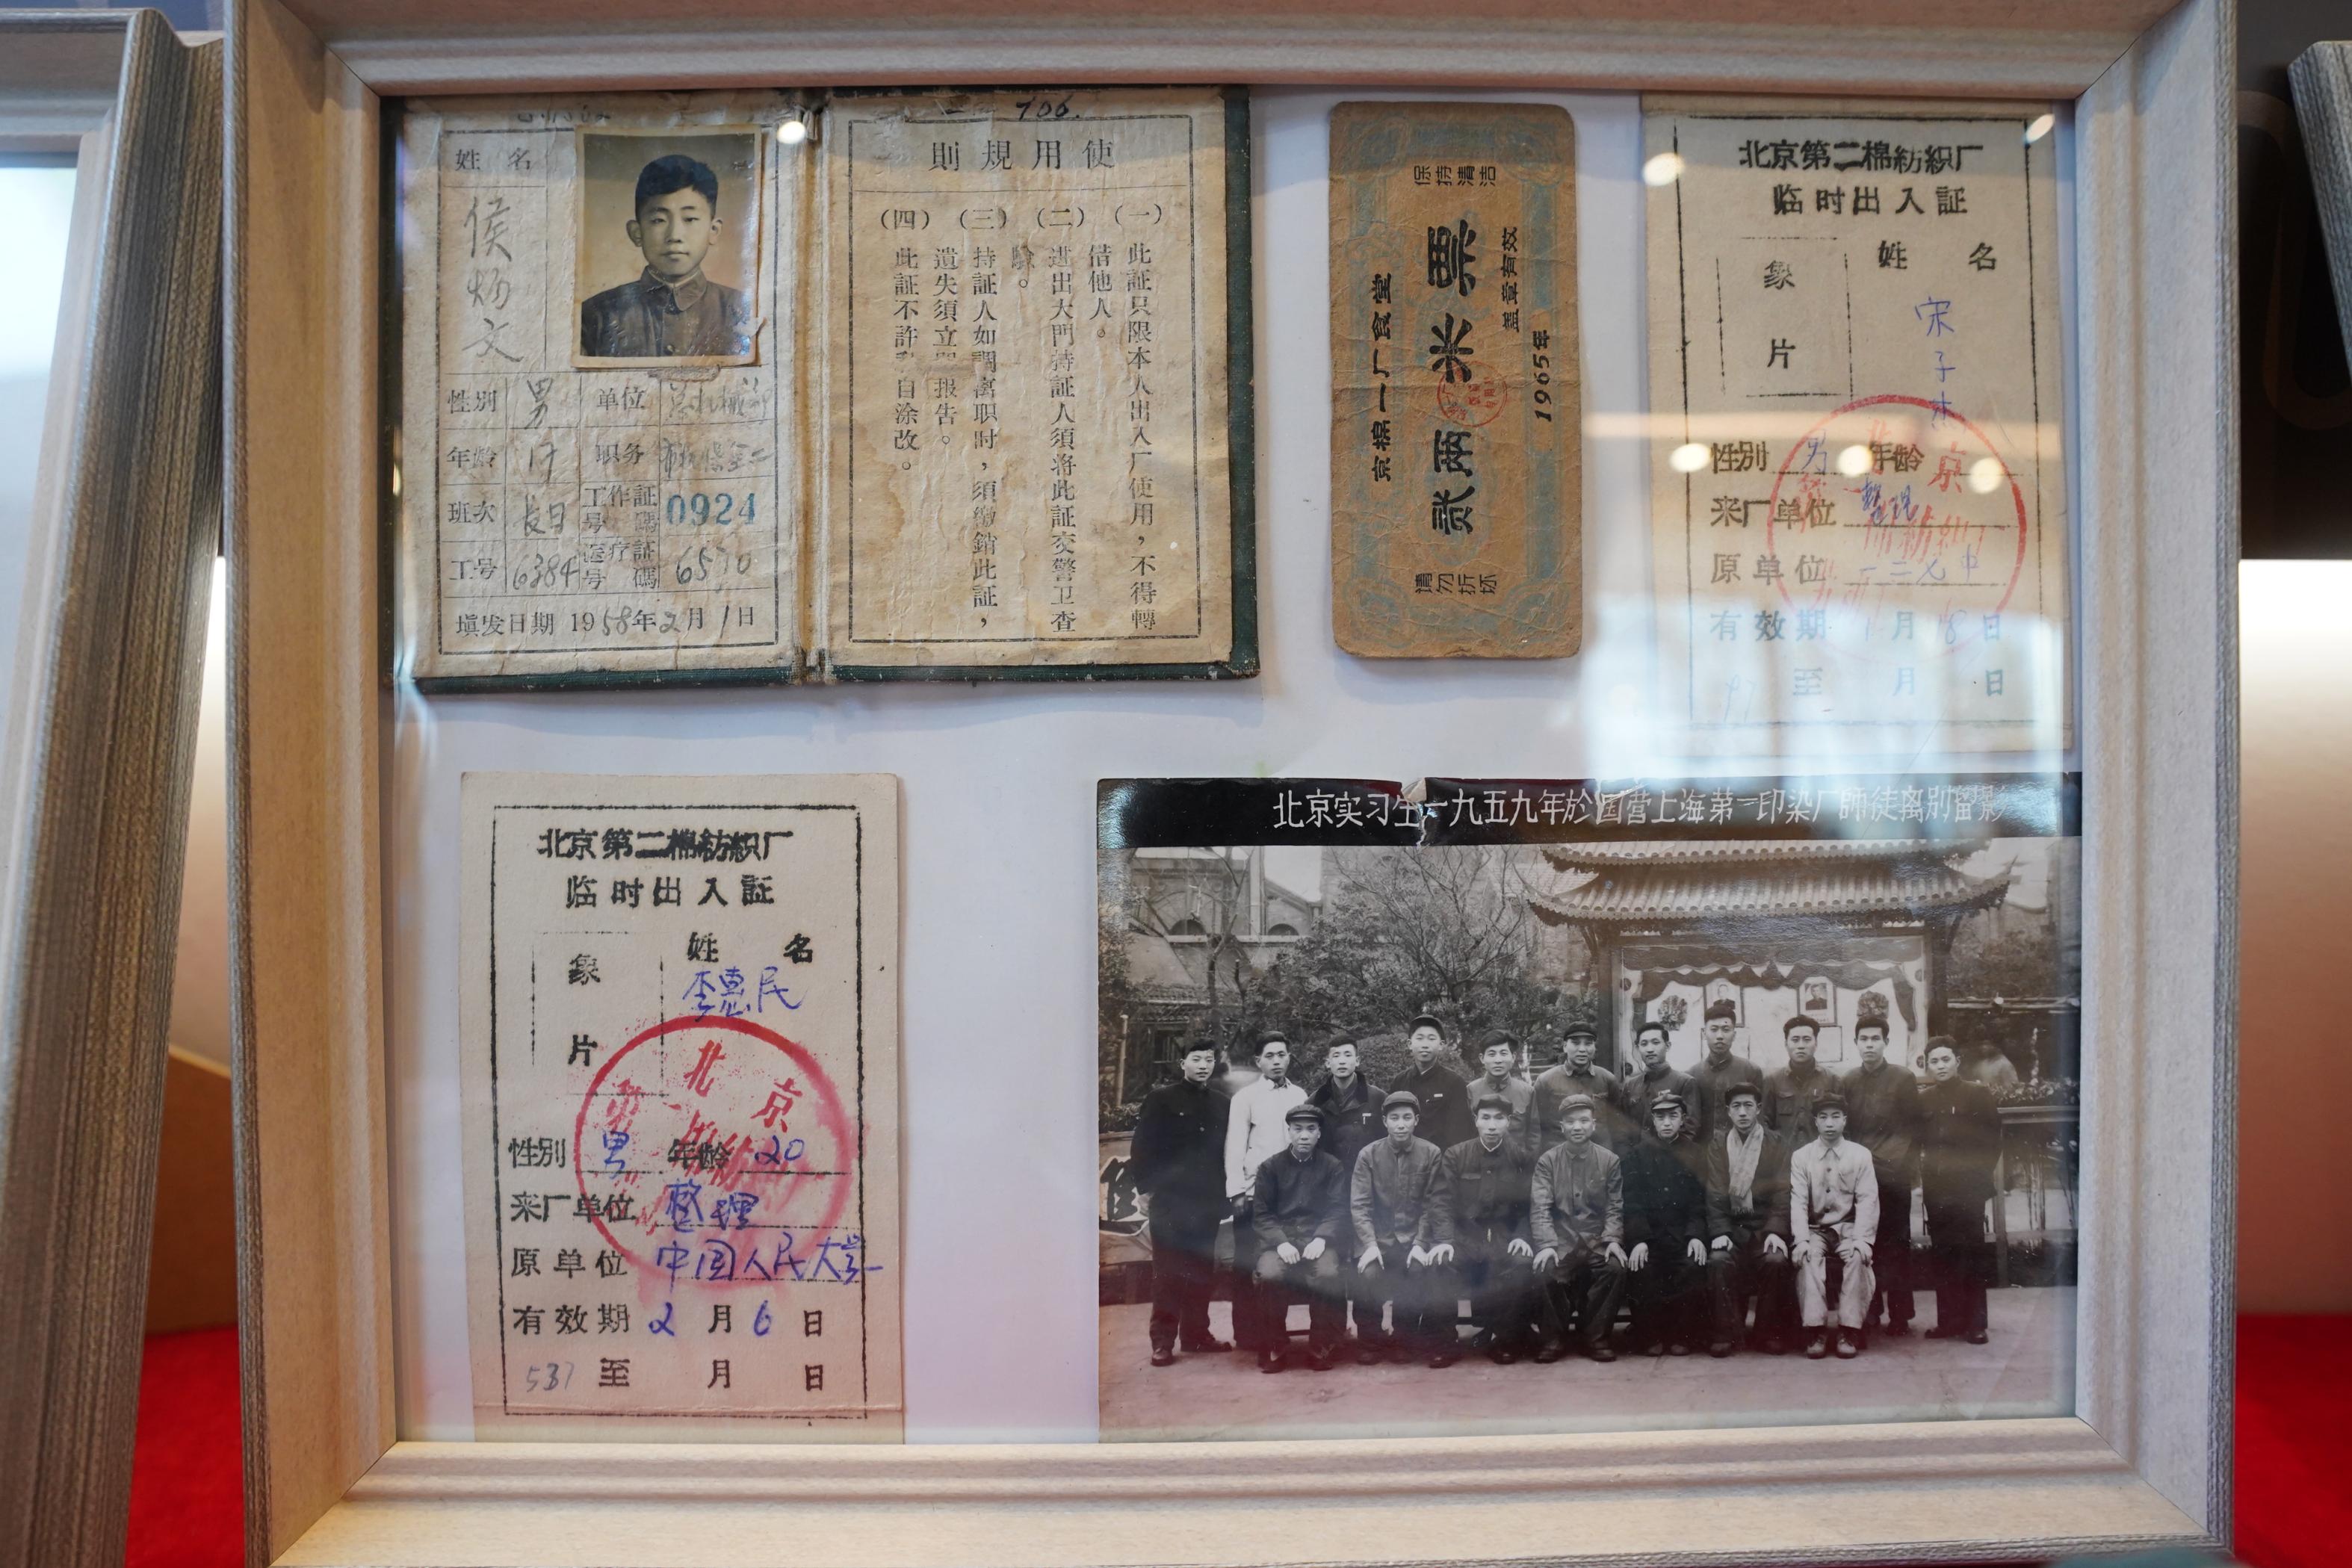 706.
姓名
侯炳文
性别 男 单位
年龄 17 职务
班次 长日 工作証号碼 0924
工号 6384 医疗証号碼 6570
填发日期 1958年2月1日
使用規則
（一）此証只限本人出入厂使用，不得轉
借他人。
（二）进出大門持証人須将此証交警卫查
驗。
（三）持証人如調离职时，須繳銷此証，
遺失須立即报告。
（四）此証不許私自涂改。
保持清洁
京棉一厂食堂
贰两米票
盖章有效
1965年
请勿折坏
北京第二棉紡織厂
临时出入証
象片
姓名
宋子木
性别 男 年龄
来厂单位 整理
原单位 一二七中
有效期 1月18日
97 至 月 日
北京第二棉紡織厂
临时出入証
象片
姓名
李惠民
北京
性别 男 年龄 20
来厂单位 整理
原单位 中国人民大学
有效期 2月6日
537 至 月 日
北京实习生一九五九年於国营上海第一印染厂師徒离别留影